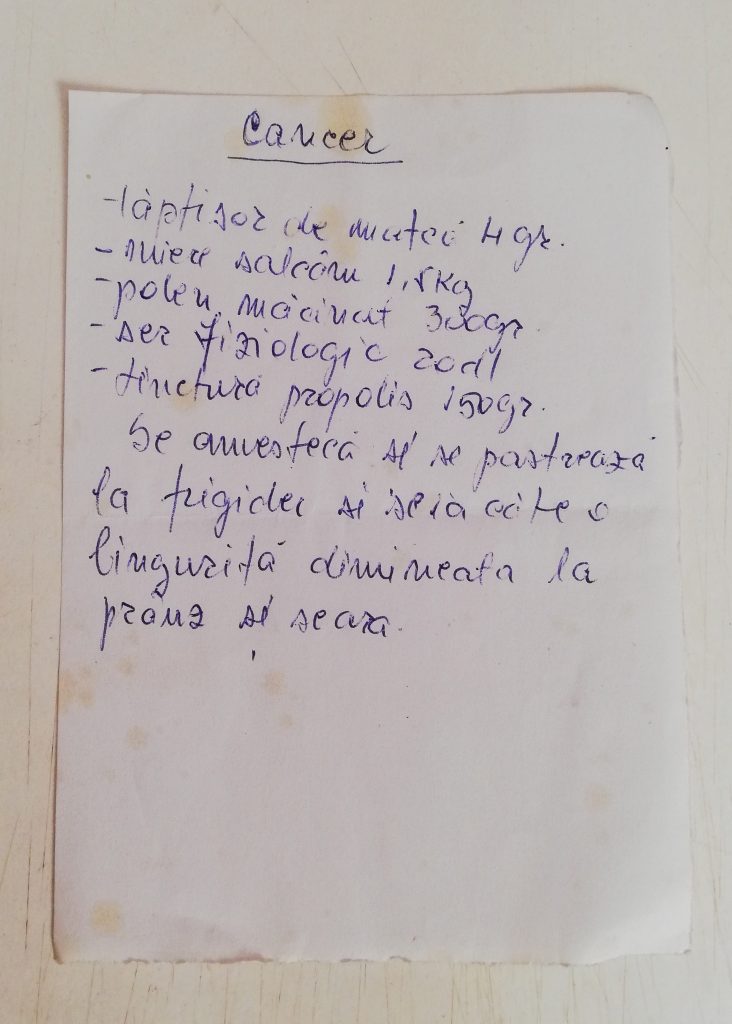 Cancer
-lăptisor de matcă 4 gr.
- miere salcâm 1,5 Kg
- polen măcinat 300gr.
- ser fiziologic 20dl
- tinctură propolis 150gr.
Se amestecă si se pastrează
la frigider si se ia câte o
linguriță dimineata la
prânz și seara.